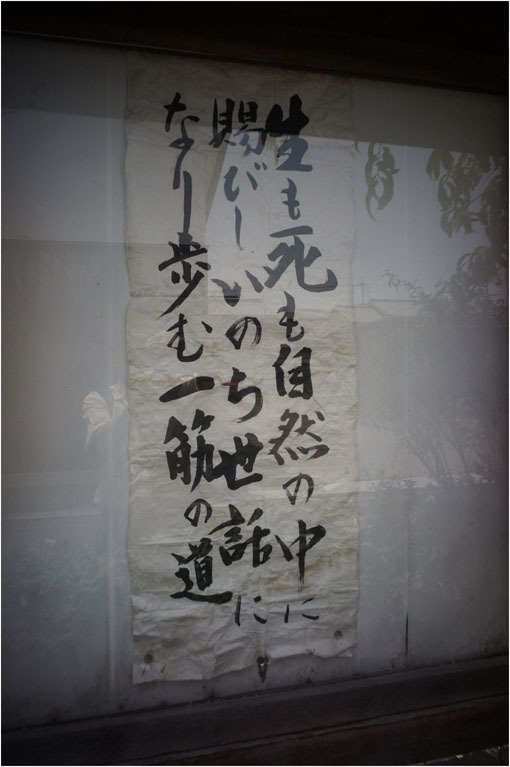 生も死も自然の中に
賜びしいのち世話に
なりし歩む一筋の道